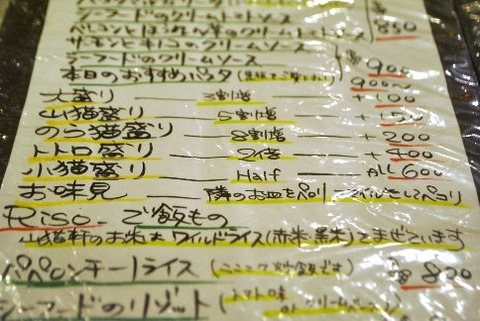 シーフードのクリームトマトソース
ベーコンとほうれん草のクリームトマトソース 850
サーモンとキノコのクリームソース
シーフードのクリームソース 900
本日のおすすめパスタ 900〜
大盛り — 3割増 +100
山猫盛り — 5割増 +150
のら猫盛り — 8割増 +200
トトロ盛り — 2倍 +400
小猫盛り — Half ALL 600
お味見 — 隣のお皿をペロリ
Riso. ご飯もの
山猫軒のお米は ワイルドライス(赤米、黒米)をまぜています
ペペロンチーノライス 820
シーフードのリゾット (トマト味 or クリーム